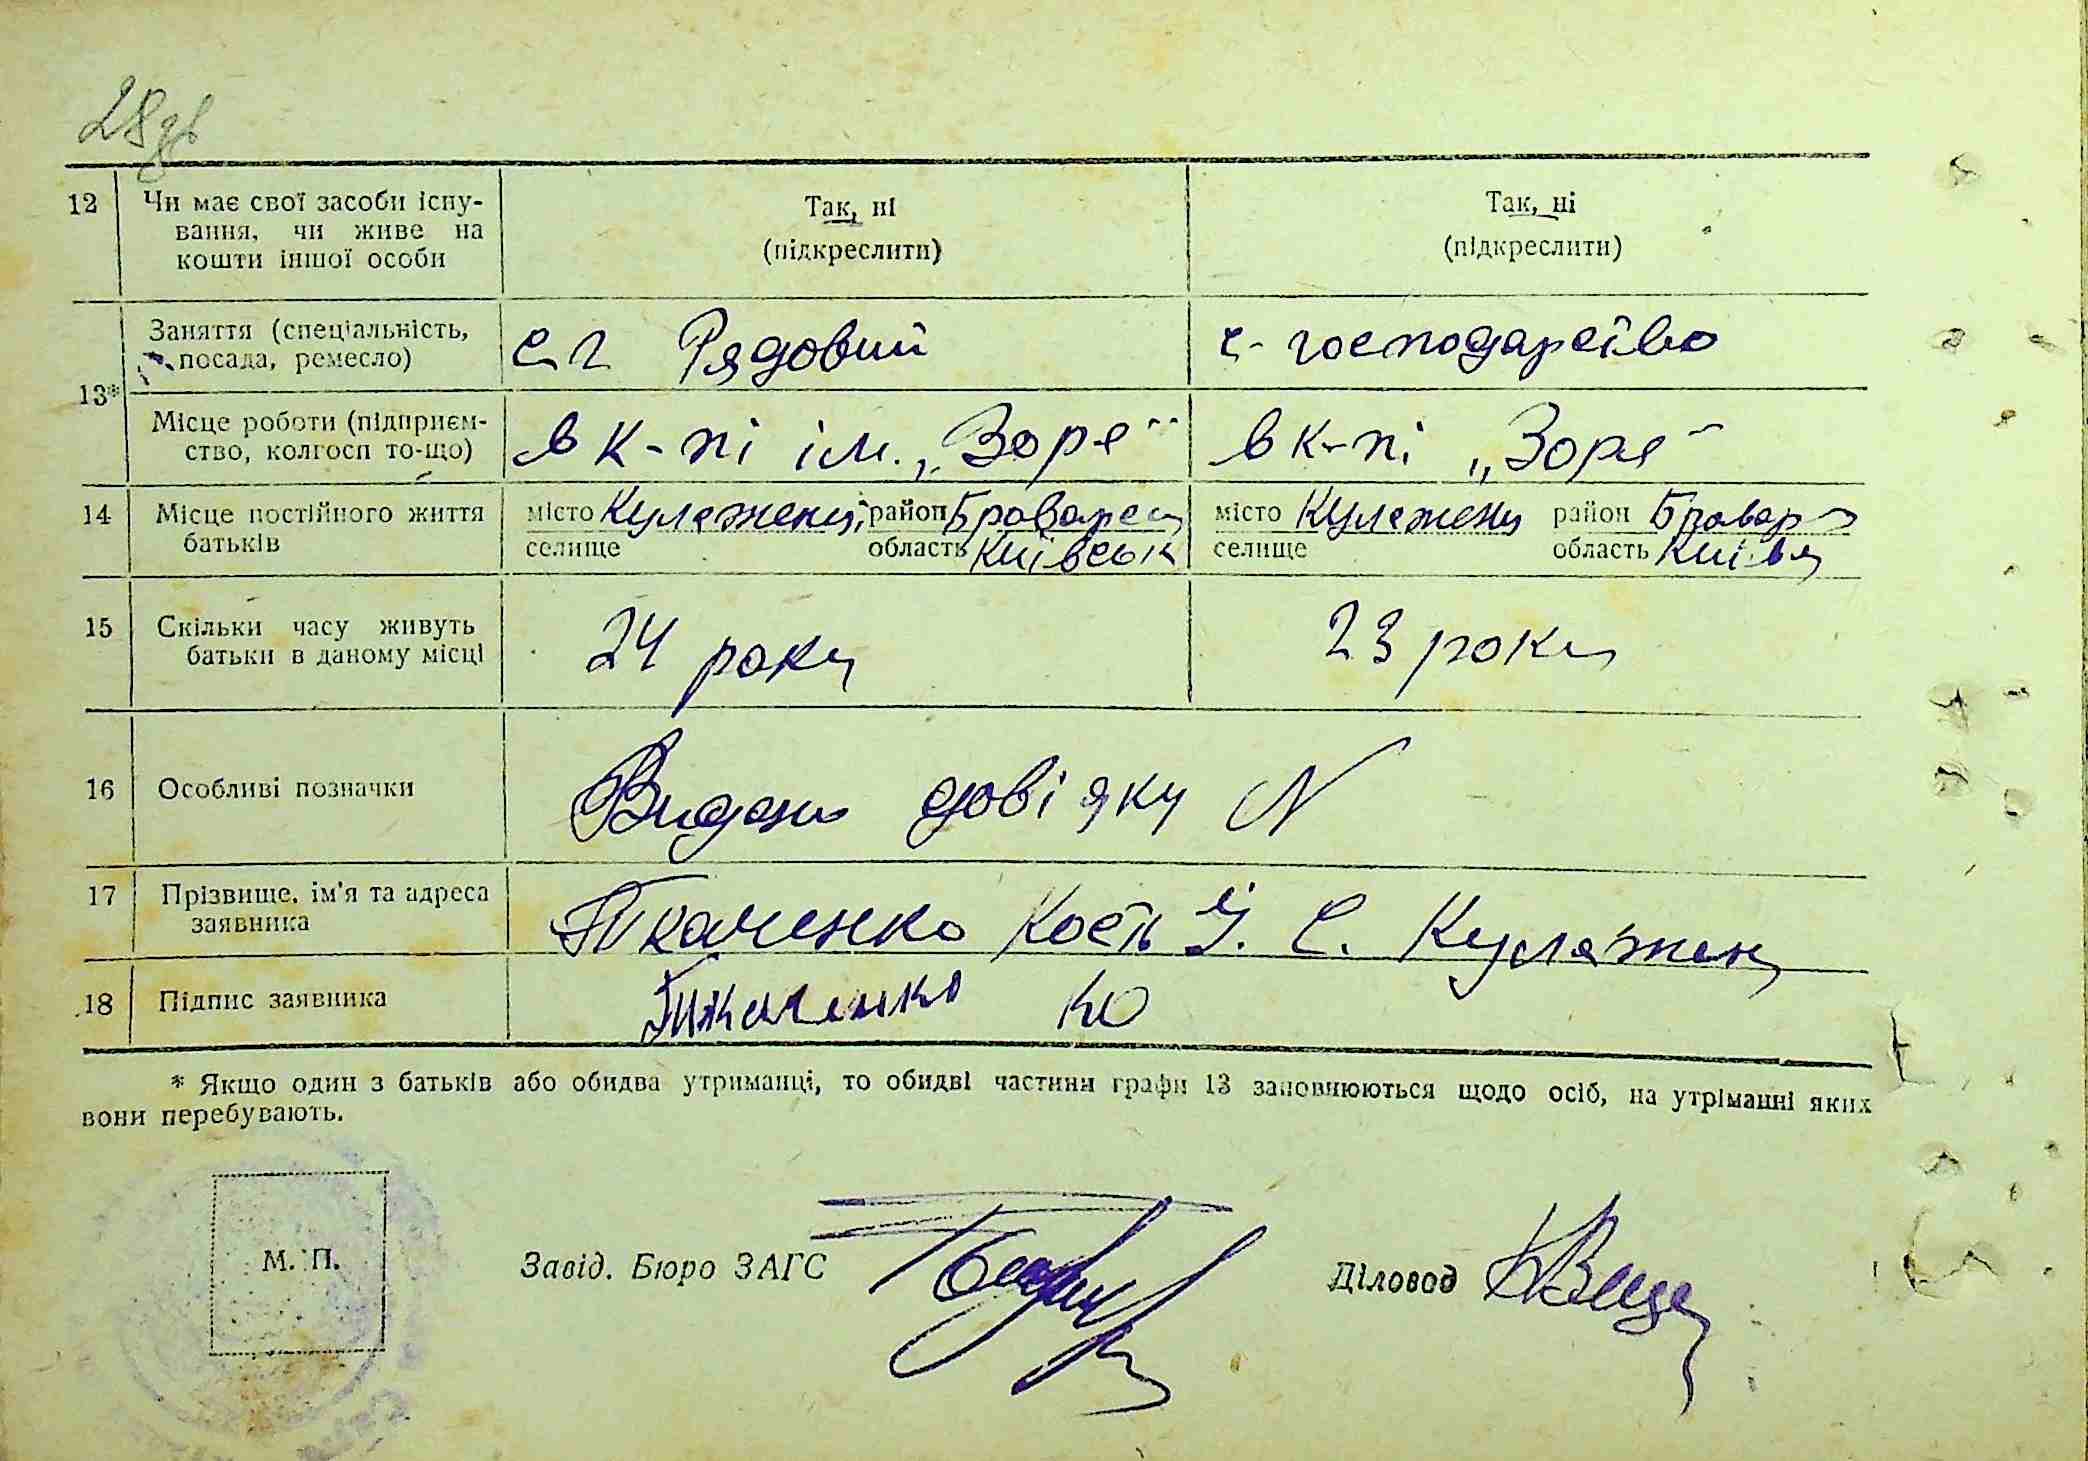 28зв
12 Чи має свої засоби існу-
вання, чи живе на
кошти іншої особи
Так, ні
(підкреслити)
Так, ні
(підкреслити)
13*
Заняття (спеціальність,
посада, ремесло)
с г Рядовий
с- господарство
Місце роботи (підприєм-
ство, колгосп то-що)
в к-пі ім. „Зоря"
в к-пі „Зоря"
14 Місце постійного життя
батьків
місто Кулеженці район Броварец
селище область Київськ
місто Кулежени район Бровар
селище область
15 Скільки часу живуть
батьки в даному місці
24 роки
23 роки
16 Особливі позначки
Видано довідку N
17 Прізвище, ім'я та адреса
заявника
Ткаченко Кость І. С. Куляжен
18 Підпис заявника
Ткаченко КО
* Якщо один з батьків або обидва утриманці, то обидві частини графи 13 заповнюються щодо осіб, на утріманні яких
вони перебувають.
М. П.
Завід. Бюро ЗАГС
Діловод